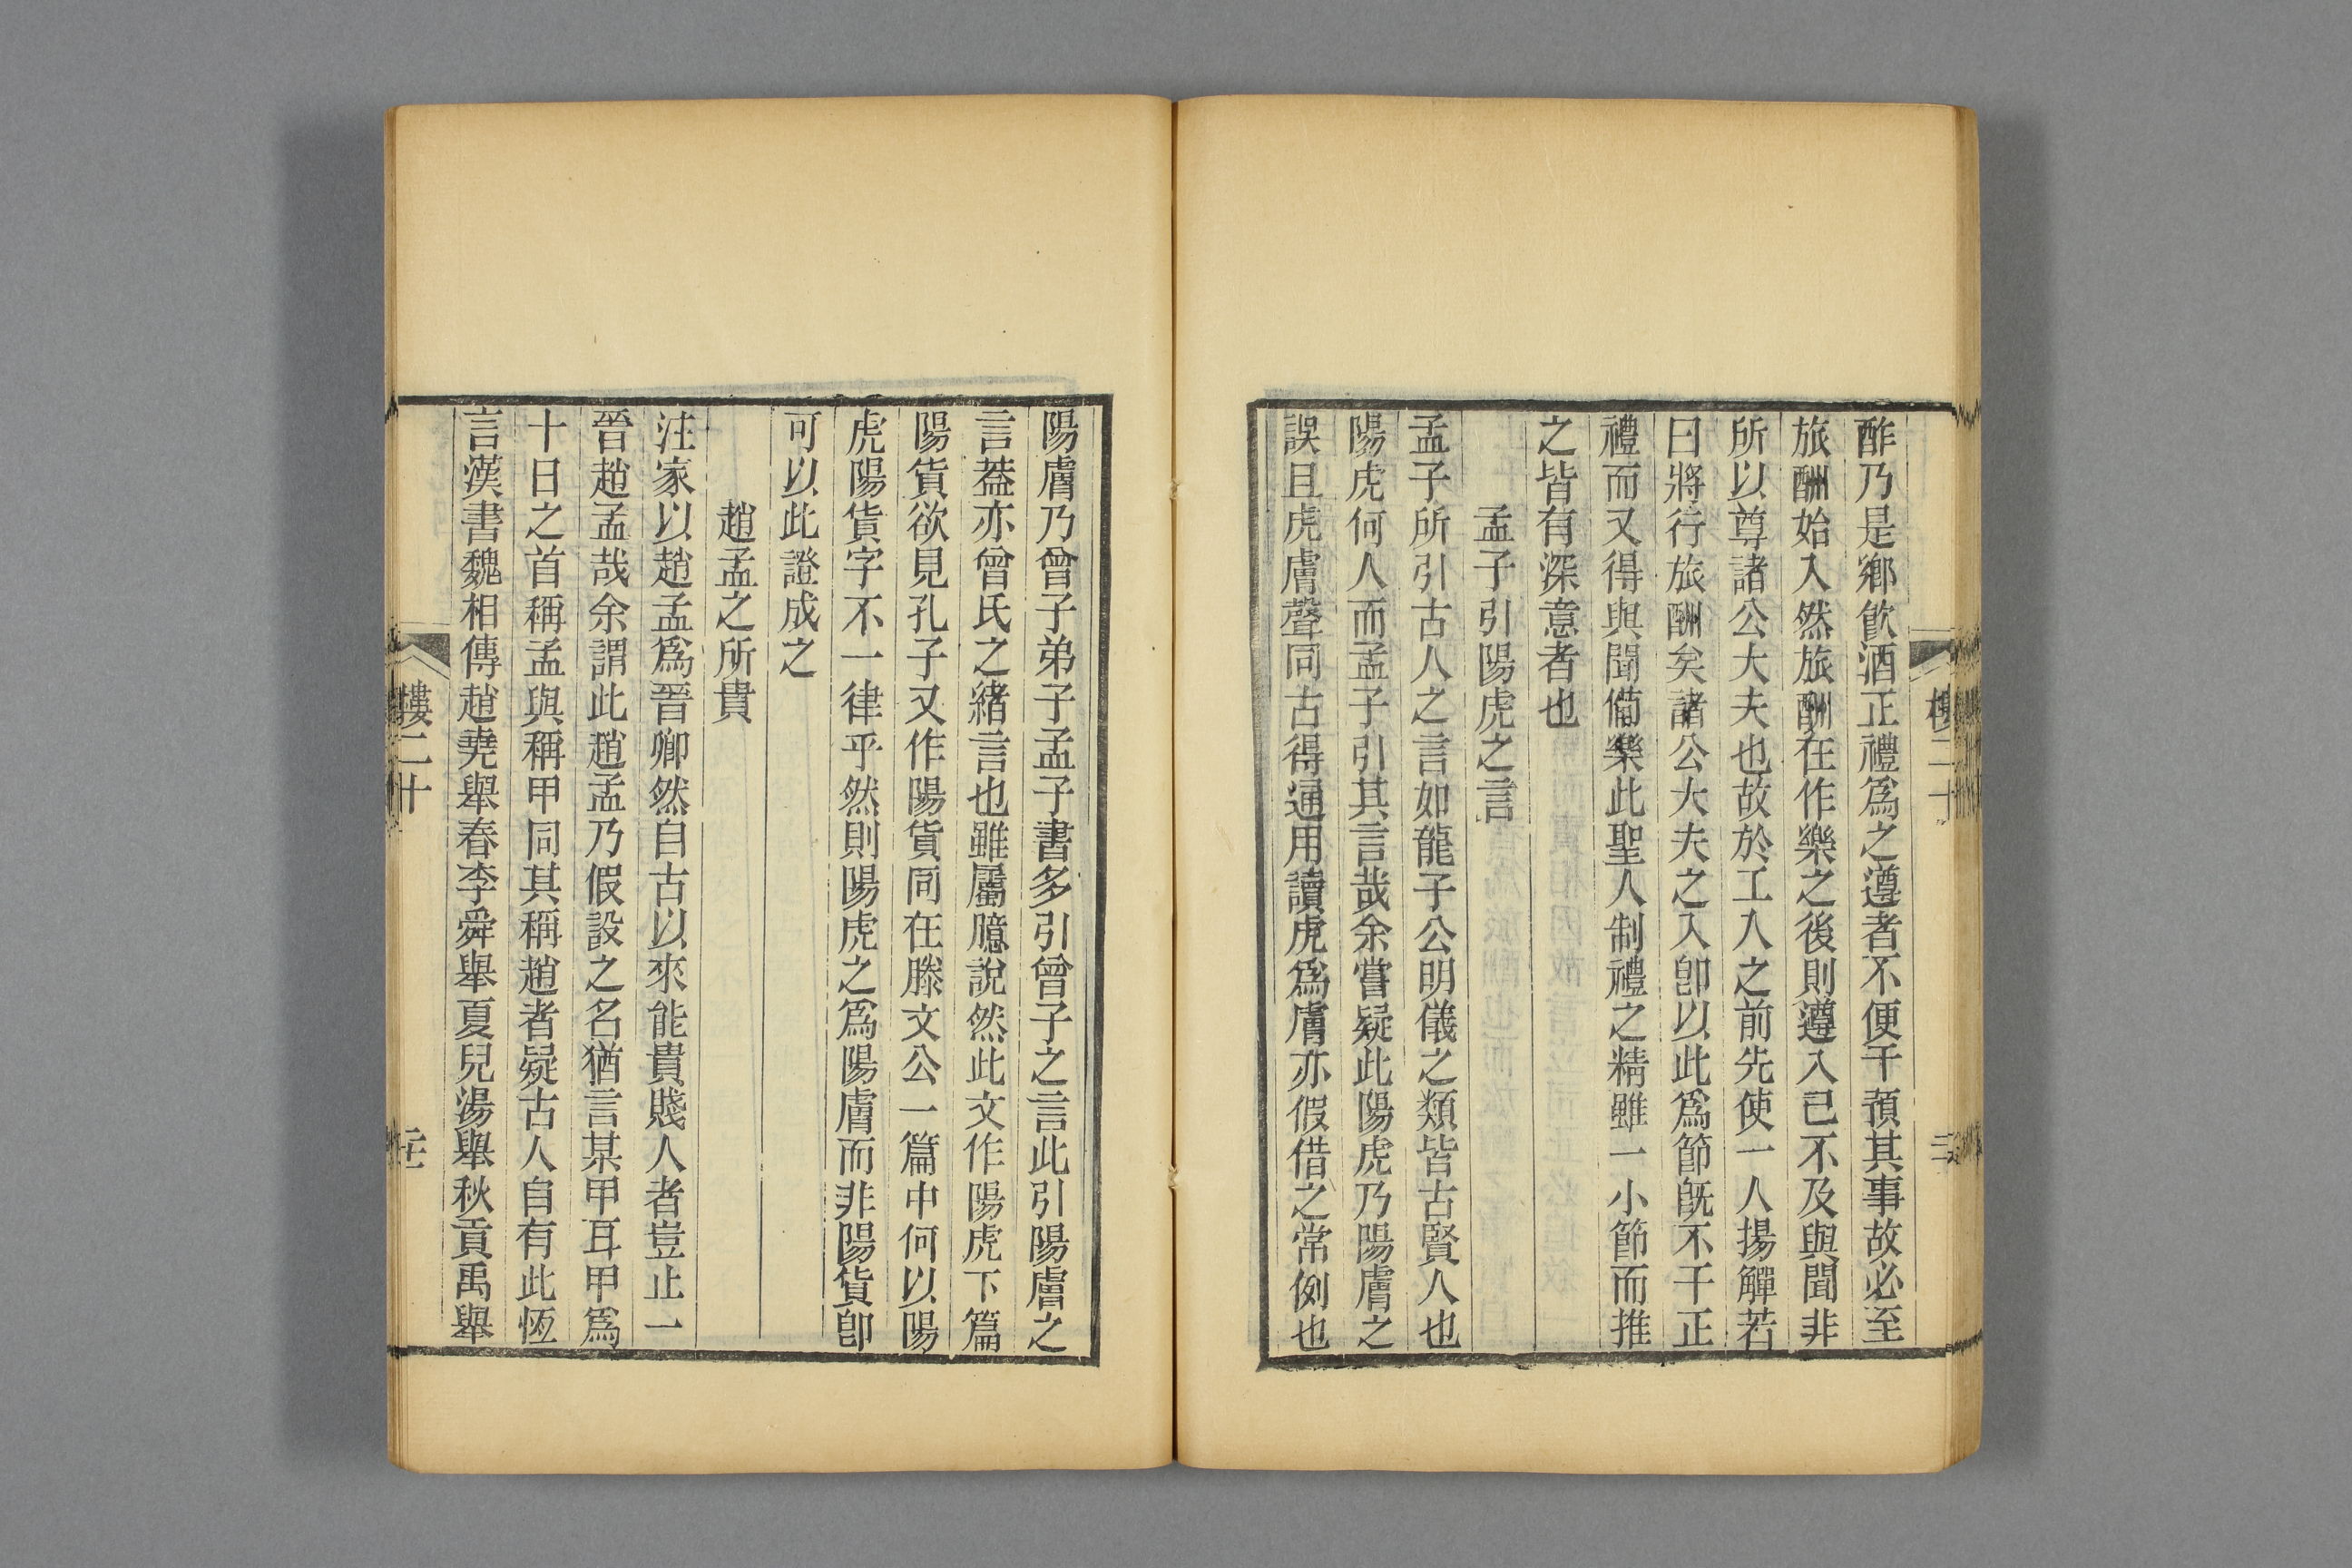 酢乃是鄉飮酒正禮爲之遵者不便干預其事故必至
旅酬始入然旅酬在作樂之後則遵入已不及與聞非
所以尊諸公大夫也故於工入之前先使一人揚觶若
曰將行旅酬矣諸公大夫之入卽以此爲節旣不干正
禮而又得與聞備樂此聖人制禮之精雖一小節而推
之皆有深意者也
孟子引陽虎之言
孟子所引古人之言如龍子公明儀之類皆古賢人也
陽虎何人而孟子引其言哉余嘗疑此陽虎乃陽膚之
誤且虎膚聲同古得通用讀虎爲膚亦假借之常例也
陽膚乃曾子弟子孟子書多引曾子之言此引陽膚之
言葢亦曾氏之緒言也雖屬臆說然此文作陽虎下篇
陽貨欲見孔子又作陽貨同在滕文公一篇中何以陽
虎陽貨字不一律乎然則陽虎之爲陽膚而非陽貨卽
可以此證成之
趙孟之所貴
注家以趙孟爲晉卿然自古以來能貴賤人者豈止一
晉趙孟哉余謂此趙孟乃假設之名猶言某甲耳甲爲
十日之首稱孟與稱甲同其稱趙者疑古人自有此恆
言漢書魏相傳趙堯舉春李舜舉夏兒湯舉秋貢禹舉
樓二十